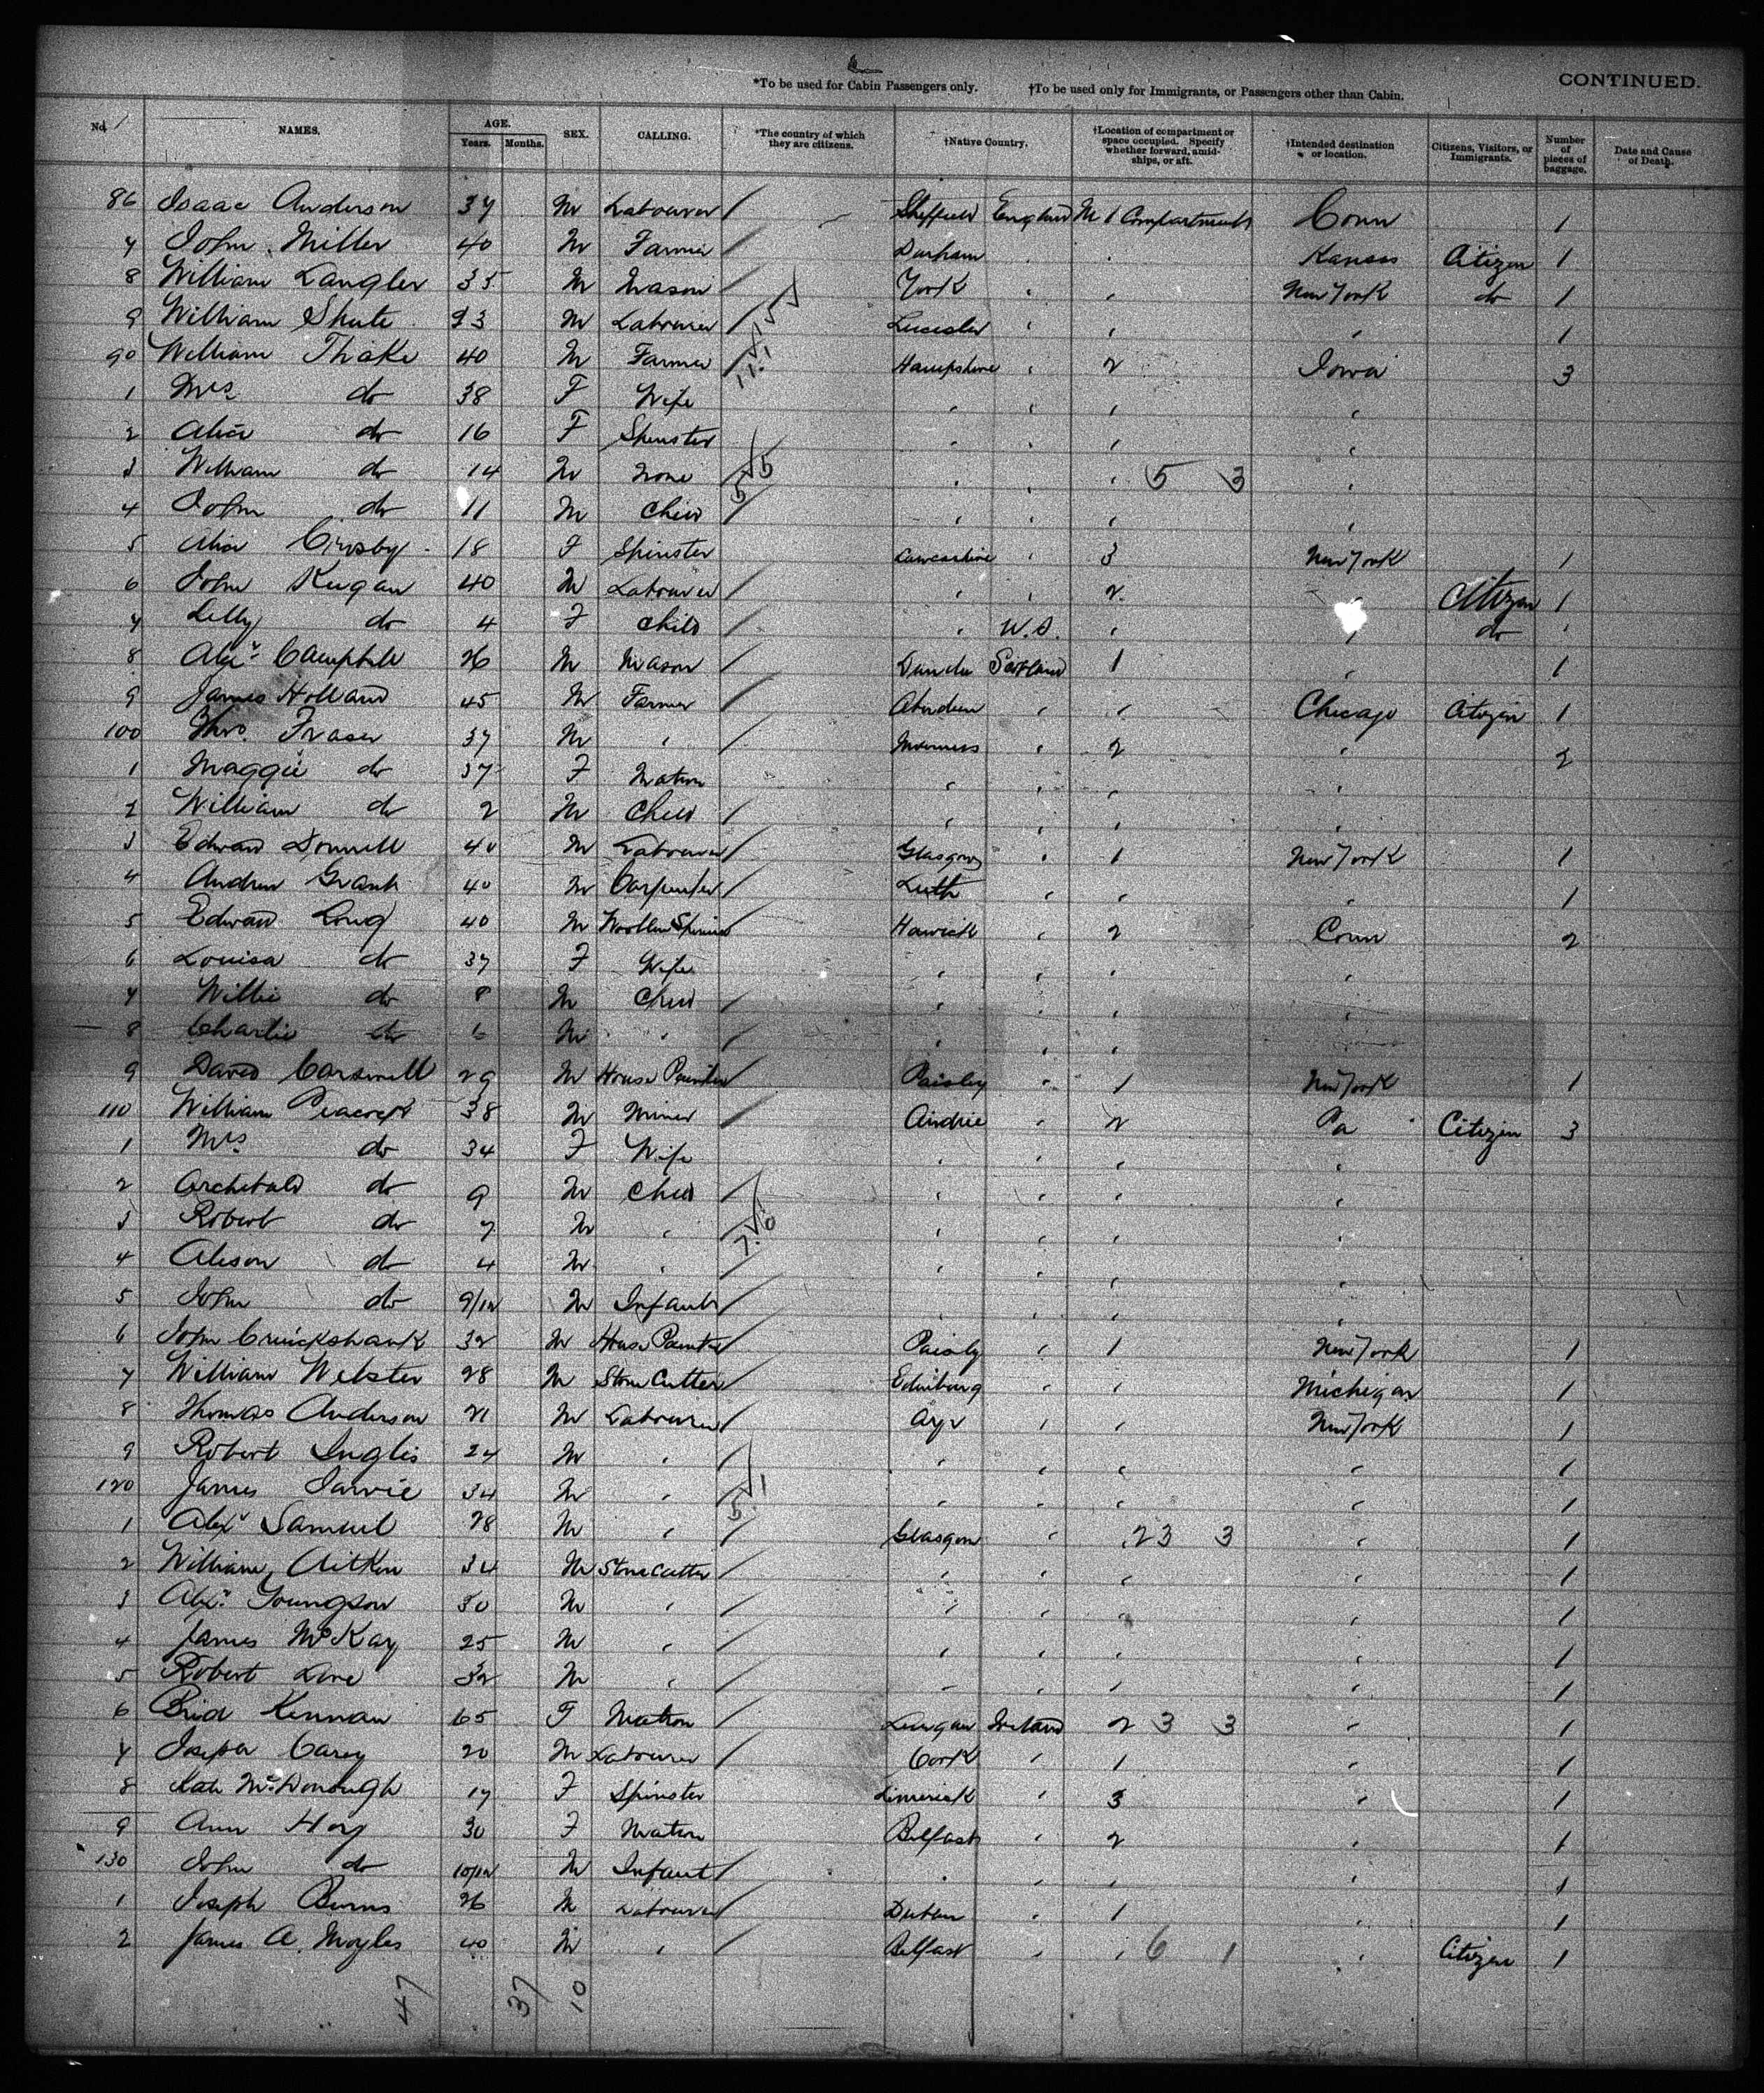 *To be used for Cabin Passengers only. †To be used only for Immigrants, or Passengers other than Cabin. CONTINUED.
No. NAMES. AGE. Years. Months. SEX. CALLING. *The country of which they are citizens. †Native Country. †Location of compartment or space occupied. Specify whether forward, amidships, or aft. †Intended destination or location. Citizens, Visitors, or Immigrants. Number of pieces of baggage. Date and Cause of Death.
86 Isaac Anderson 37 M Labourer / Sheffield England No 1 Compartment Conn 1
7 John Miller 40 M Farmer / Durham " " Kansas Citizen 1
8 William Langler 35 M Mason / York " " New York do 1
9 William Shute 23 M Labourer / Leicester " " " 1
90 William Thake 40 M Farmer / Hampshire " 2 Iowa 3
1 Mrs do 38 F Wife " " " "
2 Alice do 16 F Spinster " " " "
3 William do 14 M None / " " " 5 3 "
4 John do 11 M Child / " " " "
5 Alice Crosby 18 F Spinster Lancashire " 3 New York 1
6 John Keegan 40 M Labourer / " " 2 " Citizen 1
7 Lilly do 4 F Child / " U.S. " " do "
8 Alexr Campbell 26 M Mason / Dundee Scotland 1 " 1
9 James Holland 45 M Farmer / Aberdeen " " Chicago Citizen 1
100 Thos. Fraser 37 M " / Inverness " 2 " 2
1 Maggie do 37 F Matron " " " "
2 William do 2 M Child / " " " "
3 Edward Donnell 40 M Labourer / Glasgow " 1 New York 1
4 Andrew Grant 40 M Carpenter / Leith " " " 1
5 Edward Long 40 M Woollen Spinner Hawick " 2 Conn 2
6 Louisa do 37 F Wife " " " "
7 Willie do 8 M Child / " " " "
8 Charlie do 6 M " / " " " "
9 David Carswell 29 M House Painter / Paisley " 1 New York 1
110 William Peacock 38 M Miner / Airdrie " 2 Pa Citizen 3
1 Mrs do 34 F Wife " " " "
2 Archibald do 9 M Child / " " " "
3 Robert do 7 M " " " " "
4 Alison do 4 M " " " " "
5 John do 9/12 M Infant / " " " "
6 John Cruickshank 32 M House Painter / Paisley " 1 New York 1
7 William Webster 28 M Stone Cutter / Edinburg " " Michigan 1
8 Thomas Anderson 21 M Labourer / Ayr " " New York 1
9 Robert Inglis 24 M " / " " " " 1
120 James Jarvie 34 M " / " " " " 1
1 Alexr Samuel 28 M " / Glasgow " " 23 3 " 1
2 William Aitken 34 M Stone Cutter / " " " " 1
3 Alexr Youngson 30 M " / " " " " 1
4 James McKay 25 M " / " " " " 1
5 Robert Love 32 M " / " " " " 1
6 Brid Kennan 65 F Matron / Lurgan Ireland 2 3 3 " 1
7 Joseph Carey 20 M Labourer / Cork " 1 " 1
8 Kate McDonough 17 F Spinster Limerick " 3 " 1
9 Ann Hoy 30 F Matron Belfast " 2 " 1
130 John do 10/12 M Infant / " " " " 1
1 Joseph Burns 26 M Labourer / Dublin " 1 " 1
2 James A. Moyles 40 M " / Belfast " " 6 1 " Citizen 1
47 37 10